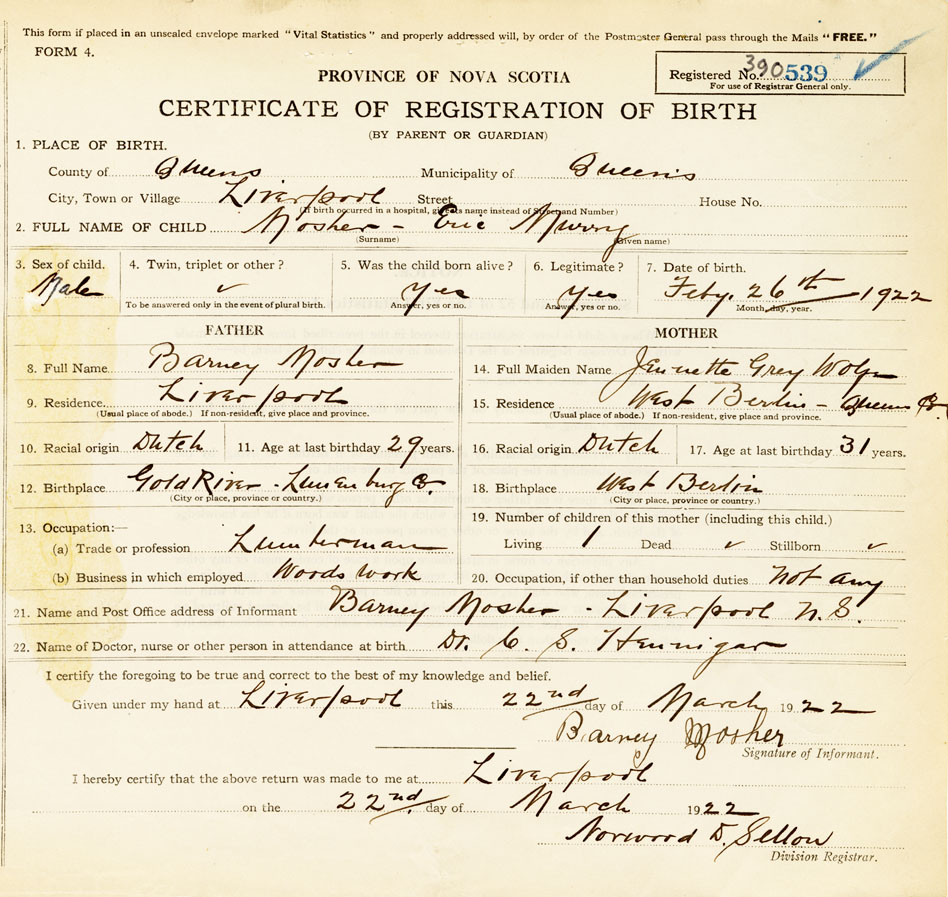 This form if placed in an unsealed envelope marked "Vital Statistics" and properly addressed will, by order of the Postmaster General pass through the Mails "FREE."
FORM 4.
PROVINCE OF NOVA SCOTIA
Registered No. 390 539
For use of Registrar General only.
CERTIFICATE OF REGISTRATION OF BIRTH
(BY PARENT OR GUARDIAN)
1. PLACE OF BIRTH.
County of Queens Municipality of Queens
City, Town or Village Liverpool Street House No.
(If birth occurred in a hospital, give its name instead of Street and Number)
2. FULL NAME OF CHILD Mosher - Eric Murry
(Surname) (Given name)
3. Sex of child. 4. Twin, triplet or other? 5. Was the child born alive? 6. Legitimate? 7. Date of birth.
Male ✓ Yes Yes Feby. 26th 1922
To be answered only in the event of plural birth. Answer, yes or no. Answer, yes or no. Month, day, year.
FATHER MOTHER
8. Full Name Barney Mosher 14. Full Maiden Name Jennette Grey
9. Residence Liverpool 15. Residence West Berlin - Queens Co.
(Usual place of abode.) If non-resident, give place and province. (Usual place of abode.) If non-resident, give place and province.
10. Racial origin Dutch 11. Age at last birthday 29 years. 16. Racial origin Dutch 17. Age at last birthday 31 years.
12. Birthplace Gold River - Lunenburg Co. 18. Birthplace West Berlin
(City or place, province or country.) (City or place, province or country.)
13. Occupation:— 19. Number of children of this mother (including this child.)
(a) Trade or profession Lumberman Living 1 Dead ✓ Stillborn ✓
(b) Business in which employed Woods work 20. Occupation, if other than household duties Not any
21. Name and Post Office address of Informant Barney Mosher - Liverpool N.S.
22. Name of Doctor, nurse or other person in attendance at birth Dr. C. S. Hennigar
I certify the foregoing to be true and correct to the best of my knowledge and belief.
Given under my hand at Liverpool this 22nd day of March 1922
Barney Mosher
Signature of Informant.
I hereby certify that the above return was made to me at Liverpool
on the 22nd day of March 1922
Norwood D. Sellon
Division Registrar.